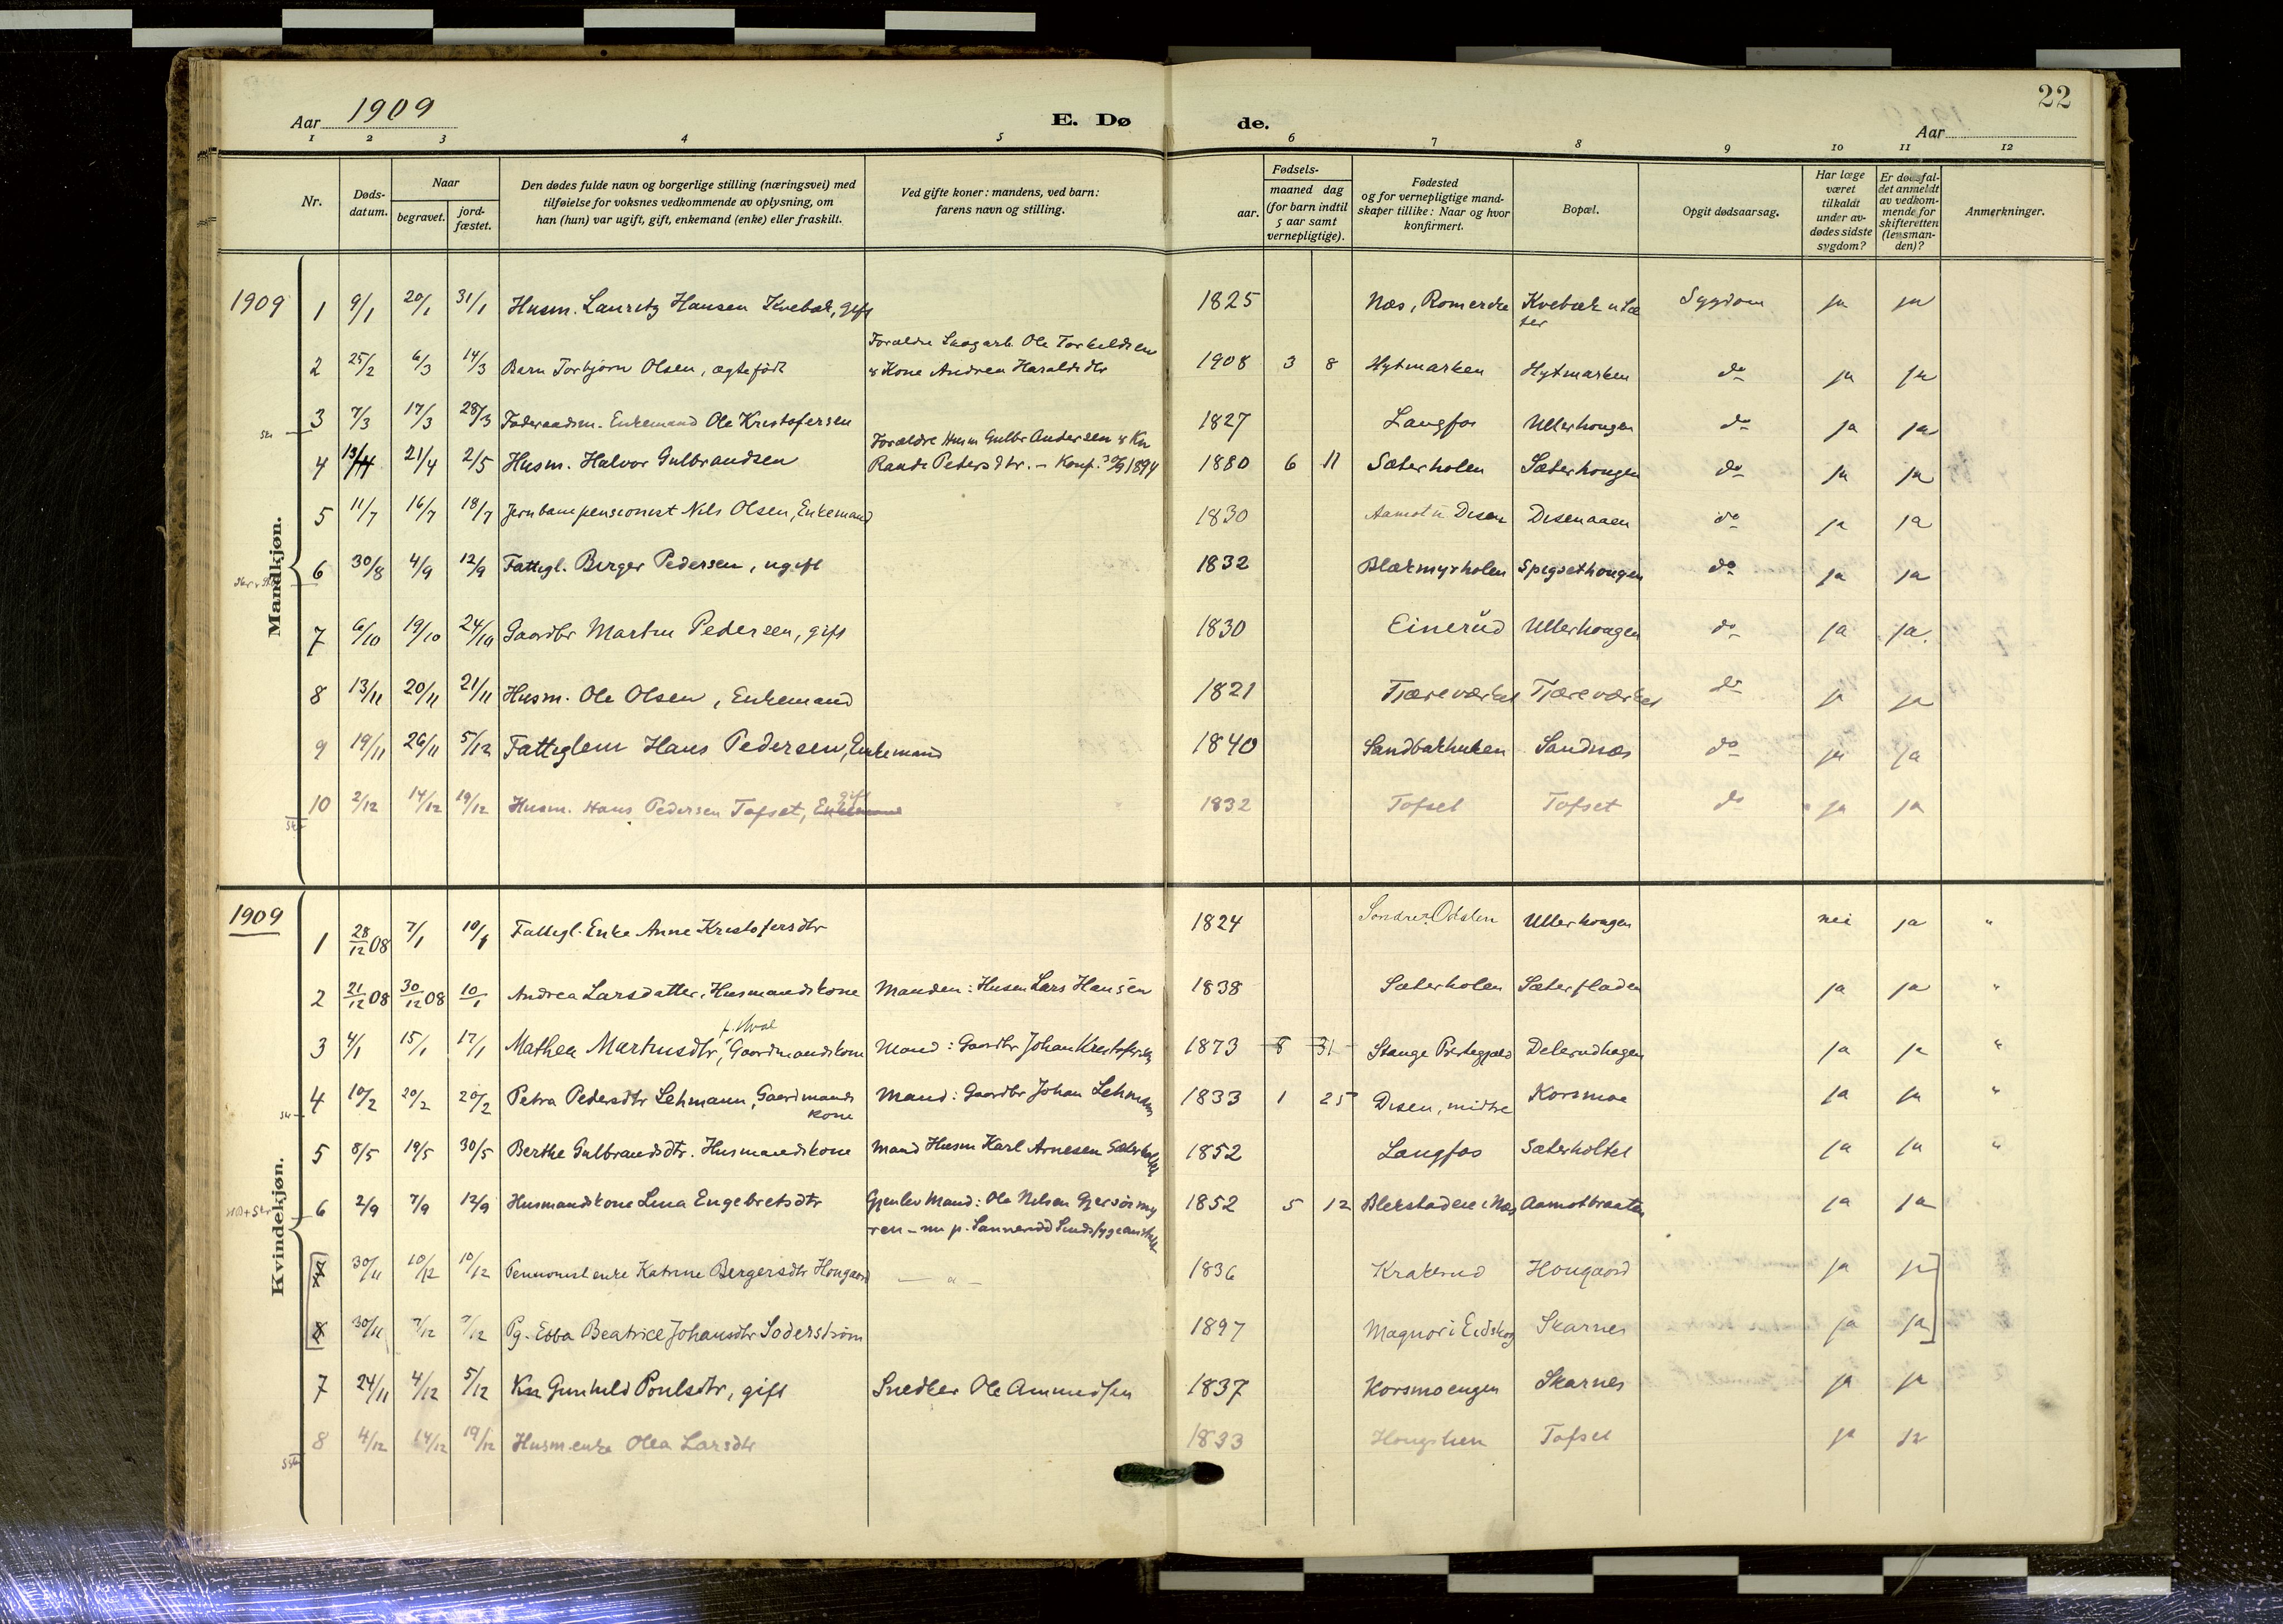 22
Aar 1909
E. Dø de.
Aar
1 2 3 4 5 6 7 8 9 10 11 12
Nr.
Døds-datum.
Naar
begravet.
jord-fæstet.
Den dødes fulde navn og borgerlige stilling (næringsvei) med
tilføielse for voksnes vedkommende av oplysning, om
han (hun) var ugift, gift, enkemand (enke) eller fraskilt.
Ved gifte koner: mandens, ved barn:
farens navn og stilling.
Fødsels-
aar.
maaned dag
(for barn indtil
5 aar samt
vernepligtige).
Fødested
og for vernepligtige mand-
skaper tillike: Naar og hvor
konfirmert.
Bopæl.
Opgit dødsaarsag.
Har læge
været
tilkaldt
under av-
dødes sidste
sygdom?
Er dødsfal-
det anmeldt
av vedkom-
mende for
skifteretten
(lensman-
den)?
Anmerkninger.
Mandkjøn.
1909 1 9/1 20/1 31/1 Husm. Lauritz Hansen Kvebæk, gift 1825 Næs, Romerike Kvebæk u Sæter Sygdom ja ja
2 25/2 6/3 14/3 Barn Torbjørn Olsen, ægtefødt Forældre Skogarb. Ole Torkeldsen & Kone Andrea Haraldsdtr 1908 3 8 Hytmarken Hytmarken do ja ja
3 7/3 17/3 28/3 Føderaadsm. Enkemand Ole Kristofersen 1827 Langfos Ullerhougen do ja ja
4 13/4 21/4 2/5 Husm. Halvor Gulbrandsen Forældre Husm Gulbr Andersen & Kn Randi Petersdtr. - Konf. 30/9 1894 1880 6 11 Sæterholen Sæterhougen do ja ja
5 11/7 16/7 18/7 Jernbanepensionist Nils Olsen, Enkemand 1830 Aamot u. Disen Disenaaen do ja ja
6 30/8 4/9 12/9 Fattigl. Birger Pedersen, ugift 1832 Blækmyrholen Spigsethougen do ja ja
7 6/10 19/10 24/10 Gaardbr Martin Pedersen, gift 1830 Einerud Ullerhougen do ja ja.
8 13/11 20/11 21/11 Husm. Ole Olsen, Enkemand 1821 Tjæreværket Tjæreværket do ja ja
9 19/11 26/11 5/12 Fattiglem Hans Pedersen, Enkemand 1840 Sandbækhuken Sandnæs do ja ja
10 2/12 14/12 19/12 Husm. Hans Pedersen Tofset, Enkemand gift 1832 Tofset Tofset do ja ja
Kvindekjøn.
1909 1 28/12 08 7/1 10/1 Fattigl. Enke Anne Kristofersdtr 1824 Søndre Odalen Ullerhougen nei ja "
2 21/12 08 30/12 08 10/1 Andrea Larsdatter, Husmandskone Manden: Husm Lars Hansen 1838 Sæterholen Sæterfladen ja ja "
3 4/1 15/1 17/1 Mathea Martinsdtr, Gaardmandskone Mand: Gaardbr Johan Kristofersen 1873 8 31 Stange Prestegjæld Delerudhagen ja ja "
4 10/2 20/2 20/2 Petra Pedersdtr Lehmann, Gaardmands kone Mand: Gaardbr Johan Lehmann 1833 1 25 Disen, midtre Korsmoe ja ja "
5 8/5 19/5 30/5 Berthe Gulbrandsdtr. Husmandskone Mand Husm Karl Arnesen Sæterholtet 1852 Langfos Sæterholtet ja ja "
6 2/9 7/9 12/9 Husmandskone Lina Engebretsdtr Gjenlev Mand: Ole Nilsen Gjersøimyren - nu p. Sannerud Sindsygeanstalt 1852 5 12 Blekstadeie i Næs Aamotbraaten ja ja
7 30/11 10/12 10/12 Pensionistenke Katrine Bergersdtr Hougaard 1836 Krakerud Hougaard ja ja
8 30/11 7/12 7/12 Pg. Ebba Beatrice Johansdtr Søderstrøm 1897 Magnor i Eidskog Skarnes ja ja
7 24/11 4/12 5/12 Kn Gunhild Poulsdtr, gift Snedker Ole Amundsen 1837 Korsmoengen Skarnes ja ja
8 4/12 14/12 19/12 Husmenke Olea Larsdtr 1833 Tofset ja ja